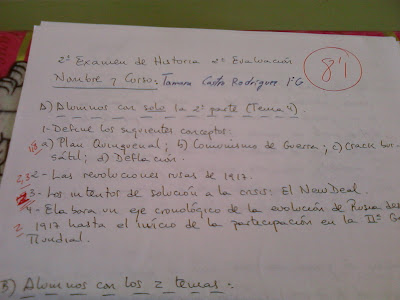 2º Examen de Historia 2ª Evaluación
Nombre y Curso: Tamara Castro Rodríguez 1º G
8'1
A) Alumnos con solo la 2ª parte (Tema 4).
1- Define los siguientes conceptos:
a) Plan Quinquenal; b) Comunismo de Guerra; c) Crack bur-
sátil; d) Deflación.
2- Las revoluciones rusas de 1917.
3- Los intentos de solución a la crisis: El New Deal.
4- Elabora un eje cronológico de la evolución de Rusia des
1917 hasta el inicio de la participación en la IIª G
Mundial.
B) Alumnos con los 2 temas: